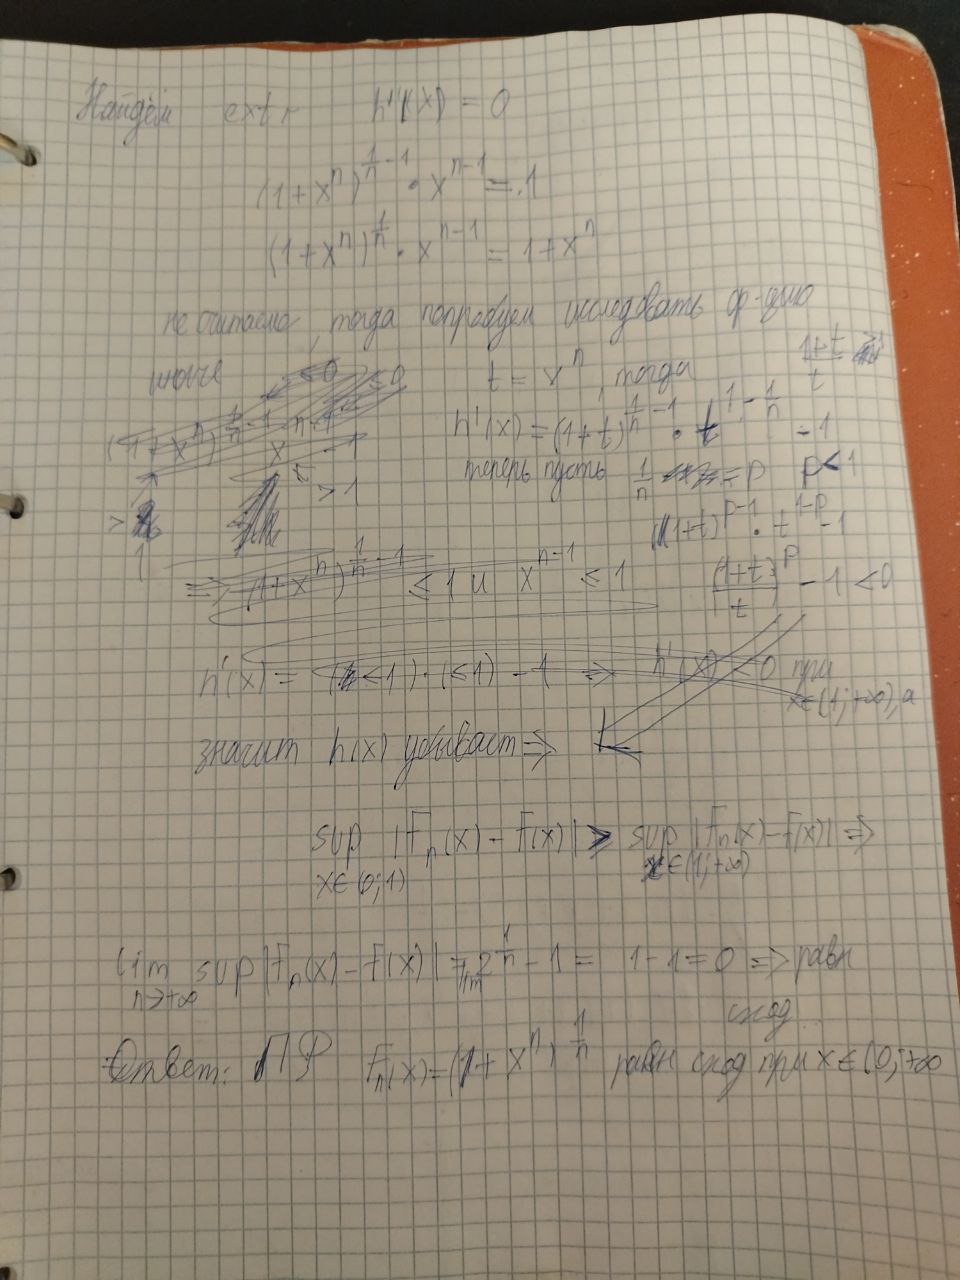 Найдём extr h'(x) = 0
(1+x^n)^{1/n - 1} · x^{n-1} = 1
(1+x^n)^{1/n} · x^{n-1} = 1+x^n
тогда попробуем исследовать ф-цию
иначе
t = x^n, тогда
h'(x) = (1+t)^{1/n - 1} · t^{1 - 1/n} - 1
теперь пусть 1/n = p p < 1
(1+t)^{p-1} · t^{1-p} - 1
(1+x^n)^{1/n - 1} x^{n-1} - 1
⇒ (1+x^n)^{1/n - 1} ≤ 1 и x^{n-1} ≤ 1
((1+t)/t)^p - 1 < 0
h'(x) = (<1)·(≤1) - 1 ⇒ h'(x) < 0 при
x∈(1;+∞), а
значит h(x) убывает ⇒
sup |f_n(x) - f(x)| > sup |f_n(x) - f(x)| ⇒
x∈(0;1) x∈(1;+∞)
lim sup |f_n(x) - f(x)| = lim 2^{1/n} - 1 = 1-1 = 0 ⇒ равн
n→+∞
сход
Ответ: ПФ f_n(x) = (1+x^n)^{1/n} равн сход при x∈(0;+∞